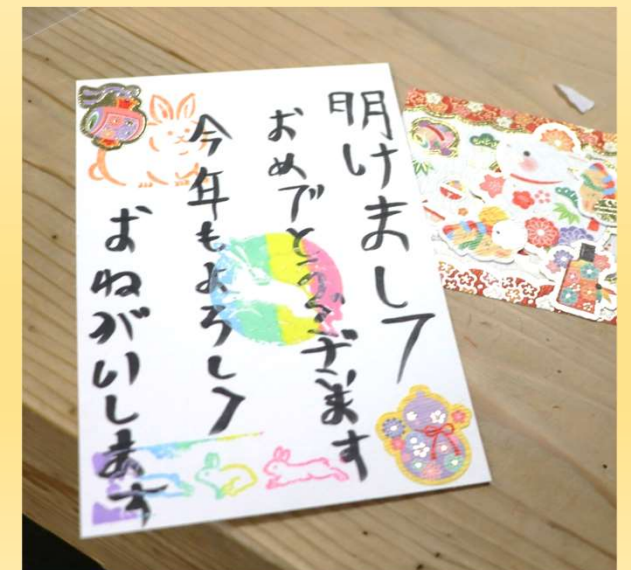 明けまして
おめでとうございます
今年もよろしく
おねがいします